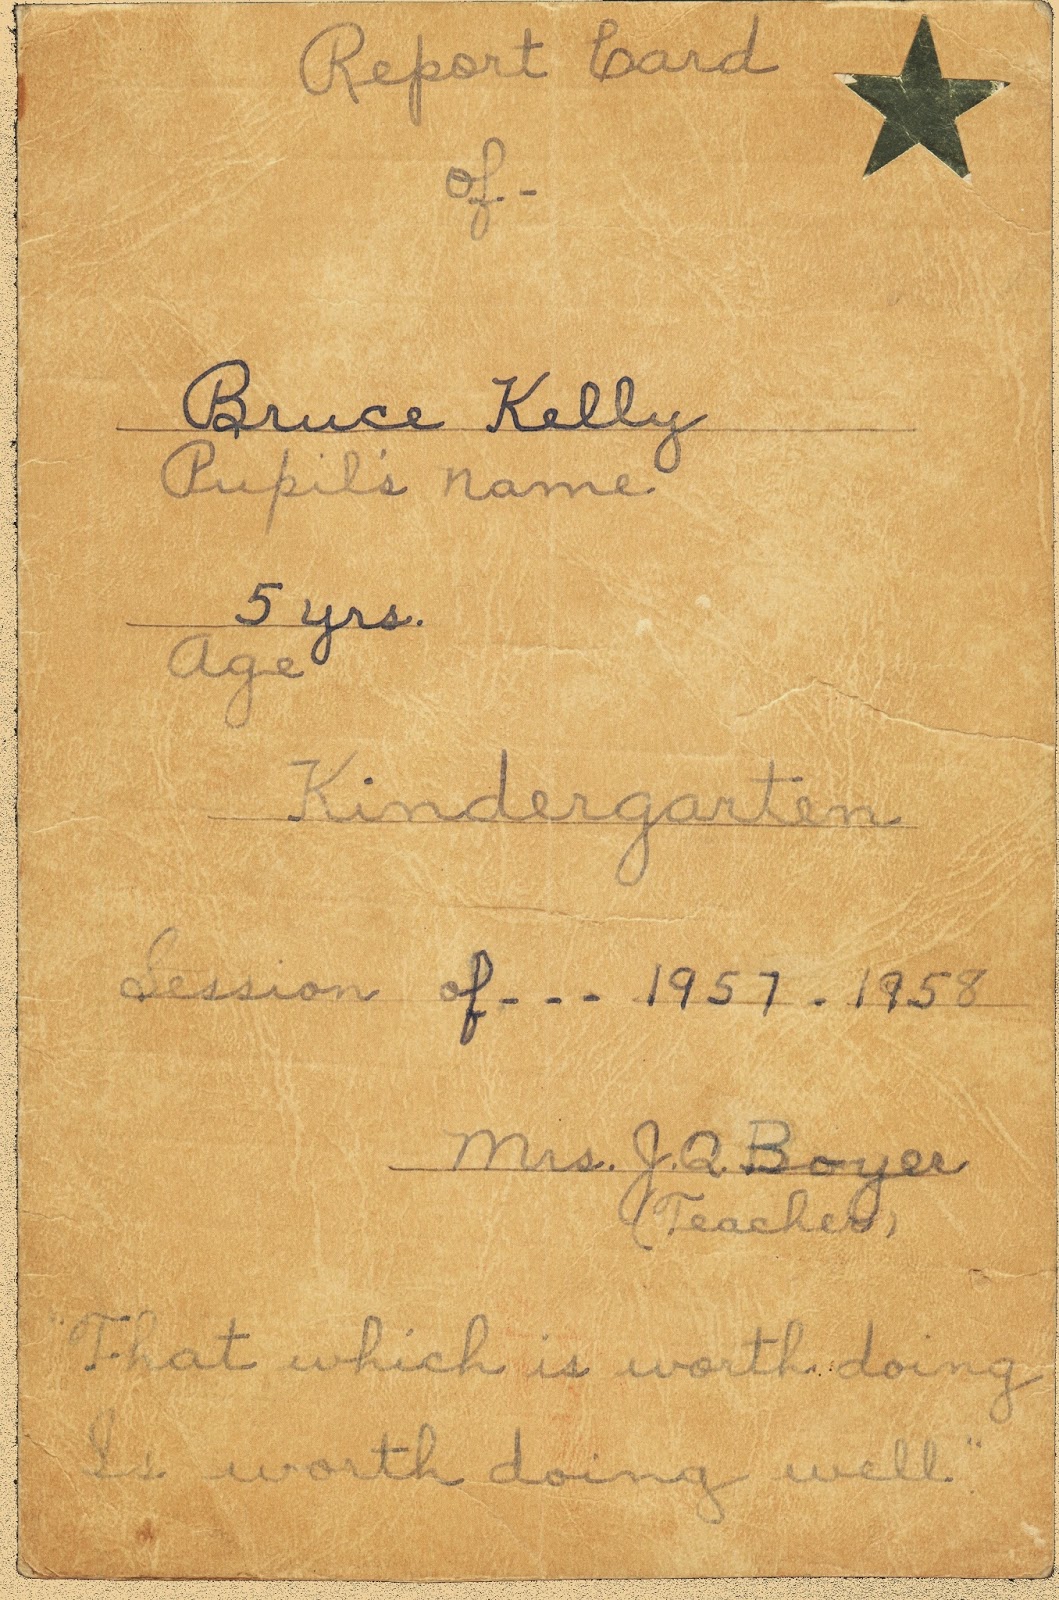 Report Card
of -
Bruce Kelly
Pupil's name
5 yrs.
Age
Kindergarten
Session of - - - 1957 - 1958
Mrs. J. Q. Boyer
(Teacher)
"That which is worth doing
Is worth doing well"